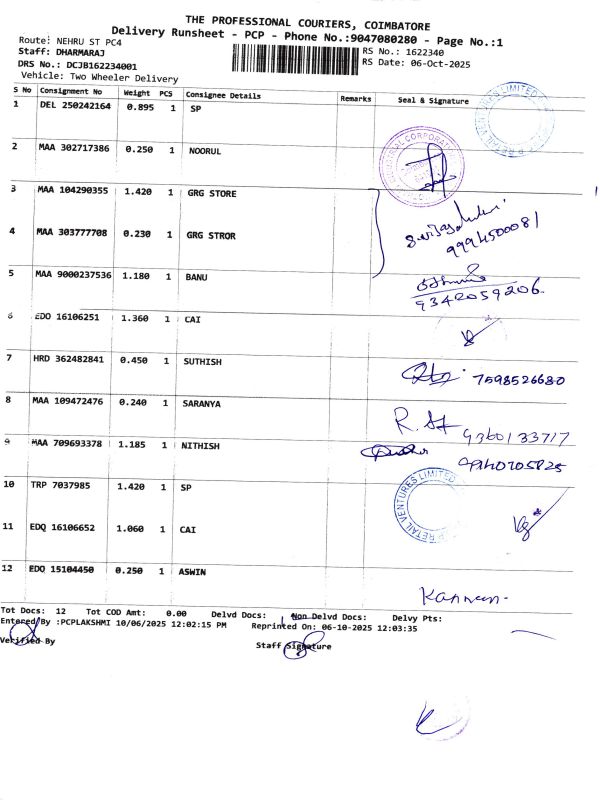 THE PROFESSIONAL COURIERS, COIMBATORE
Delivery Runsheet - PCP - Phone No.:9047080280 - Page No.:1
Route: NEHRU ST PC4
RS No.: 1622340
Staff: DHARMARAJ
RS Date: 06-Oct-2025
DRS No.: DCJB162234001
Vehicle: Two Wheeler Delivery
S No Consignment No Weight PCS Consignee Details Remarks Seal & Signature
1 DEL 250242164 0.895 1 SP
RETAIL VENTURES LIMITED
2 MAA 302717386 0.250 1 NOORUL
3 MAA 104290355 1.420 1 GRG STORE
4 MAA 303777708 0.230 1 GRG STROR
9994500081
5 MAA 9000237536 1.180 1 BANU
9342059206
6 EDO 16106251 1.360 1 CAI
7 HRD 362482841 0.450 1 SUTHISH
7598526680
8 MAA 109472476 0.240 1 SARANYA
9360133717
9 MAA 709693378 1.185 1 NITHISH
10 TRP 7037985 1.420 1 SP
RETAIL VENTURES LIMITED
11 EDQ 16106652 1.060 1 CAI
12 EDO 15104450 0.250 1 ASWIN
Kannan-
Tot Docs: 12 Tot COD Amt: 0.00 Delvd Docs: Non Delvd Docs: Delvy Pts:
Entered By :PCPLAKSHMI 10/06/2025 12:02:15 PM Reprinted On: 06-10-2025 12:03:35
Verified By Staff Signature